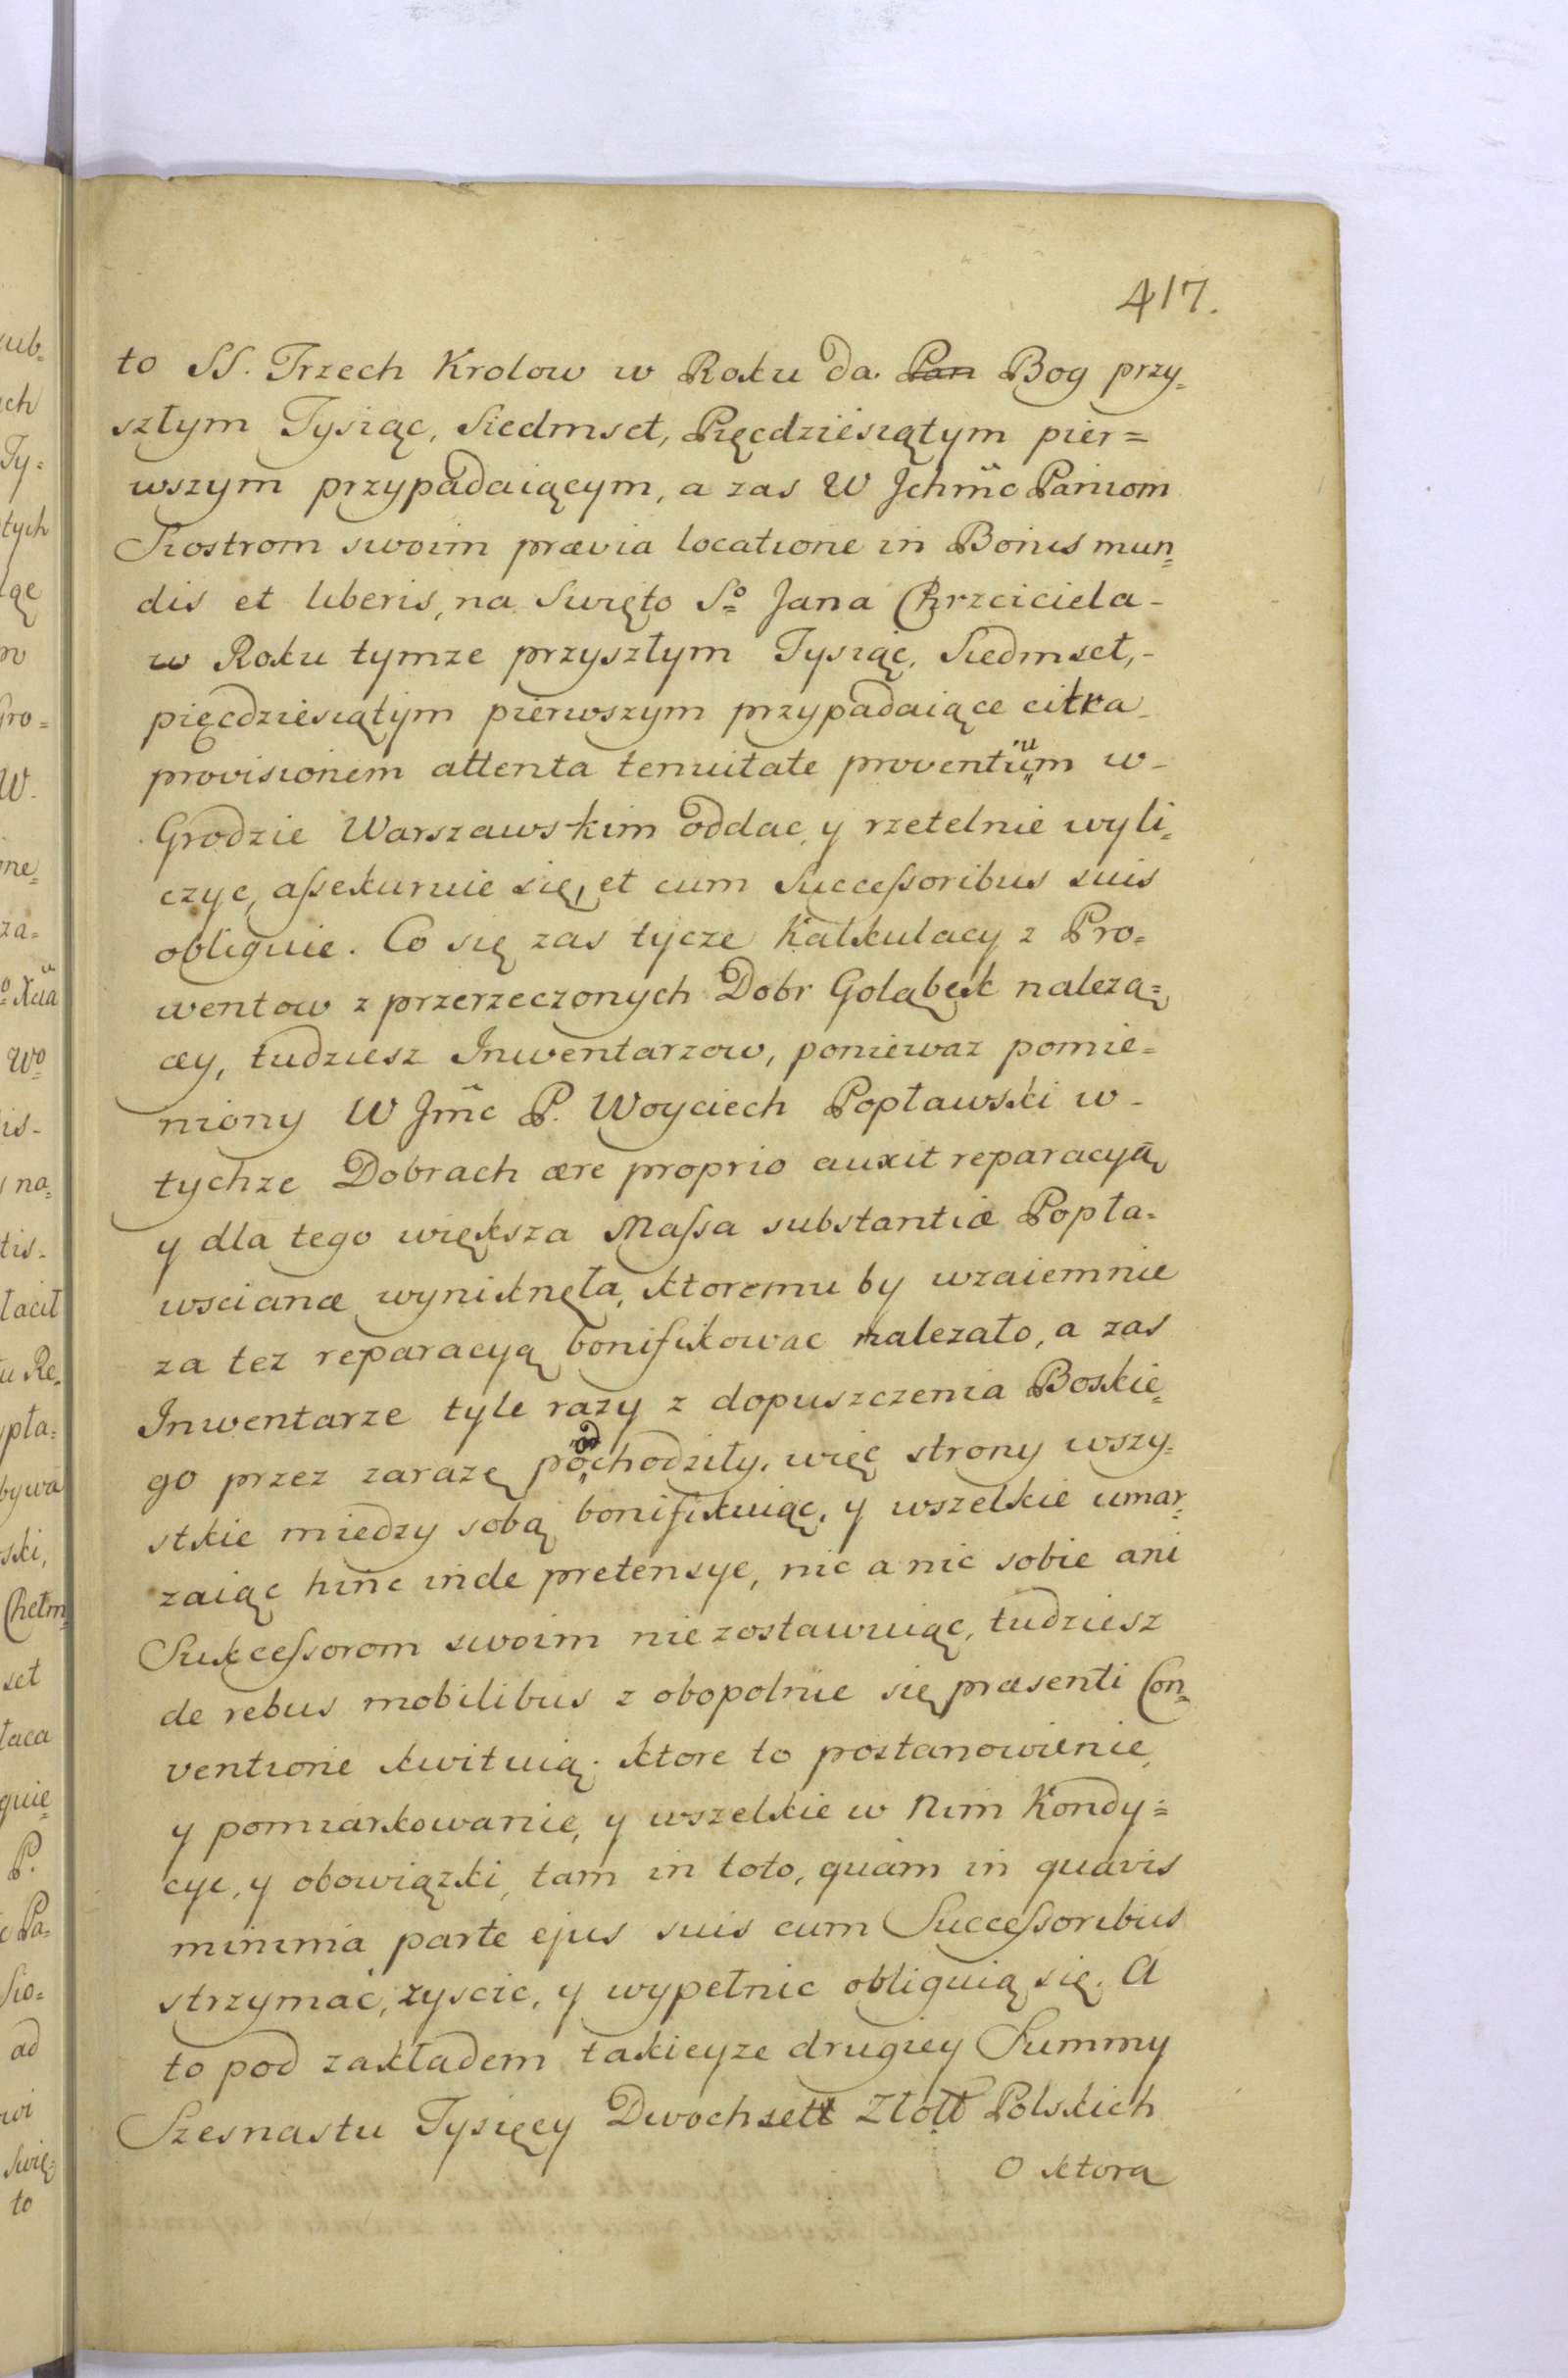 417.
to SS. Trzech Krolow w Roku da Pan Bog przy=
szłym Tysiąc, Siedmset, Pięcdziesiątym pier=
wszym przypadaiącym, a zas W Jchmc Paniom
Siostrom swoim prævia locatione in Bonis mun=
dis et liberis, na Swięto Sº Jana Chrzciciela-
w Roku tymze przyszłym Tysiąc, Siedmset,-
pięcdziesiątym pierwszym przypadaiące citra-
provisionem attenta tenuitate proventuum w-
Grodzie Warszawskim oddac, y rzetelnie wyli=
czyc, aſsekuruie się, et cum Succeſsoribus suis
obliguie. Co się zas tycze Kalkulacy z Pro=
wentow z przerzeczonych Dobr Goląbek nalezą=
cey, tudziesz Inwentarzow, poniewaz pomie=
niony W Jmc P. Woyciech Popławski w-
tychze Dobrach ære proprio auxit reparacyą,
y dla tego większa Maſsa substantiæ Popła=
wscianæ wyniknęła, ktoremu by wzaiemnie
za tez reparacyą bonifikowac nalezało, a zas
Inwentarze tyle razy z dopuszczenia Boskie=
go przez zarazę podchodziły, więc strony wszy=
stkie miedzy sobą bonifikuiąc, y wszelkie umar=
zaiąc hinc inde pretensye, nic a nic sobie ani
Sukceſsorom swoim nie zostawuiąc, tudziesz
de rebus mobilibus z obopolnie się præsenti Con=
ventione kwituią. ktore to postanowienie,
y pomiarkowanie, y wszelkie w Nim Kondy=
cye, y obowiązki, tam in toto, quam in quavis
minima parte ejus suis cum Succeſsoribus
strzymac, zyscic, y wypełnic obliguią się. A
to pod zakładem takieyze drugiey Summy
Szesnastu Tysięcy Dwochsett Złott Polskich
O ktorą
ub=
ch
Ty=
tych
ro=
W-
ne=
za=
Wº
is-
no=
tis-
łacił
u Re=
pła=
bywa
ski,
Chełm=
set
łaca
guie=
P.
Pa=
Sio=
ad
wi
Swię=
to